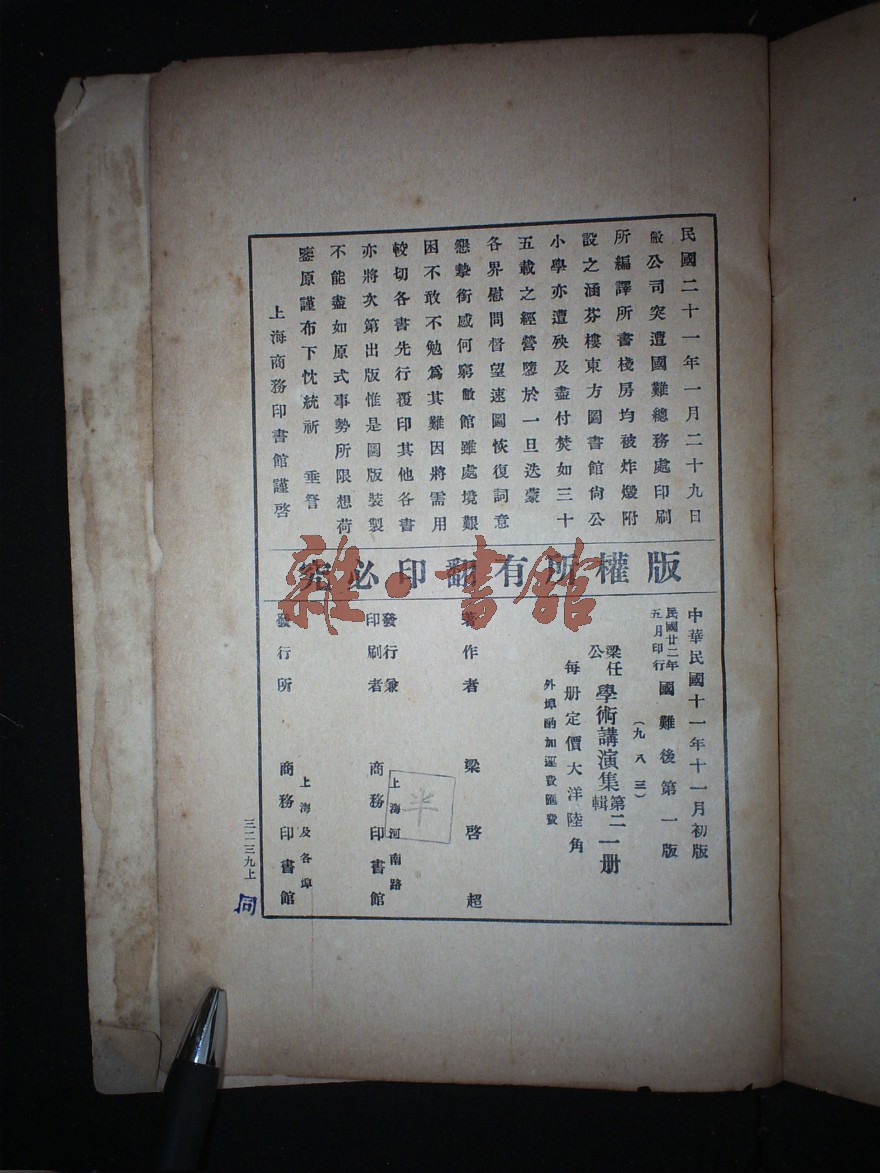 民國二十一年一月二十九日
敝公司突遭國難總務處印刷
所編譯所書棧房均被炸燬附
設之涵芬樓東方圖書館尙公
小學亦遭殃及盡付焚如三十
五載之經營墮於一旦迭蒙
各界慰問督望速圖恢復詞意
懇摯銜感何窮敝館雖處境艱
困不敢不勉爲其難因將需用
較切各書先行覆印其他各書
亦將次第出版惟是圖版裝製
不能盡如原式事勢所限想荷
鑒原謹布下忱統祈 垂詧
上海商務印書館謹啓
版權所有翻印必究
中華民國十一年十一月初版
民國廿二年五月印行 國難後第一版
(九八三)
梁任公學術講演集第二輯 一册
每册定價大洋陸角
外埠酌加運費匯費
著作者 梁啓超
發行兼印刷者 上海河南路 商務印書館
發行所 上海及各埠 商務印書館
三二三九上
同
半
雜·書館